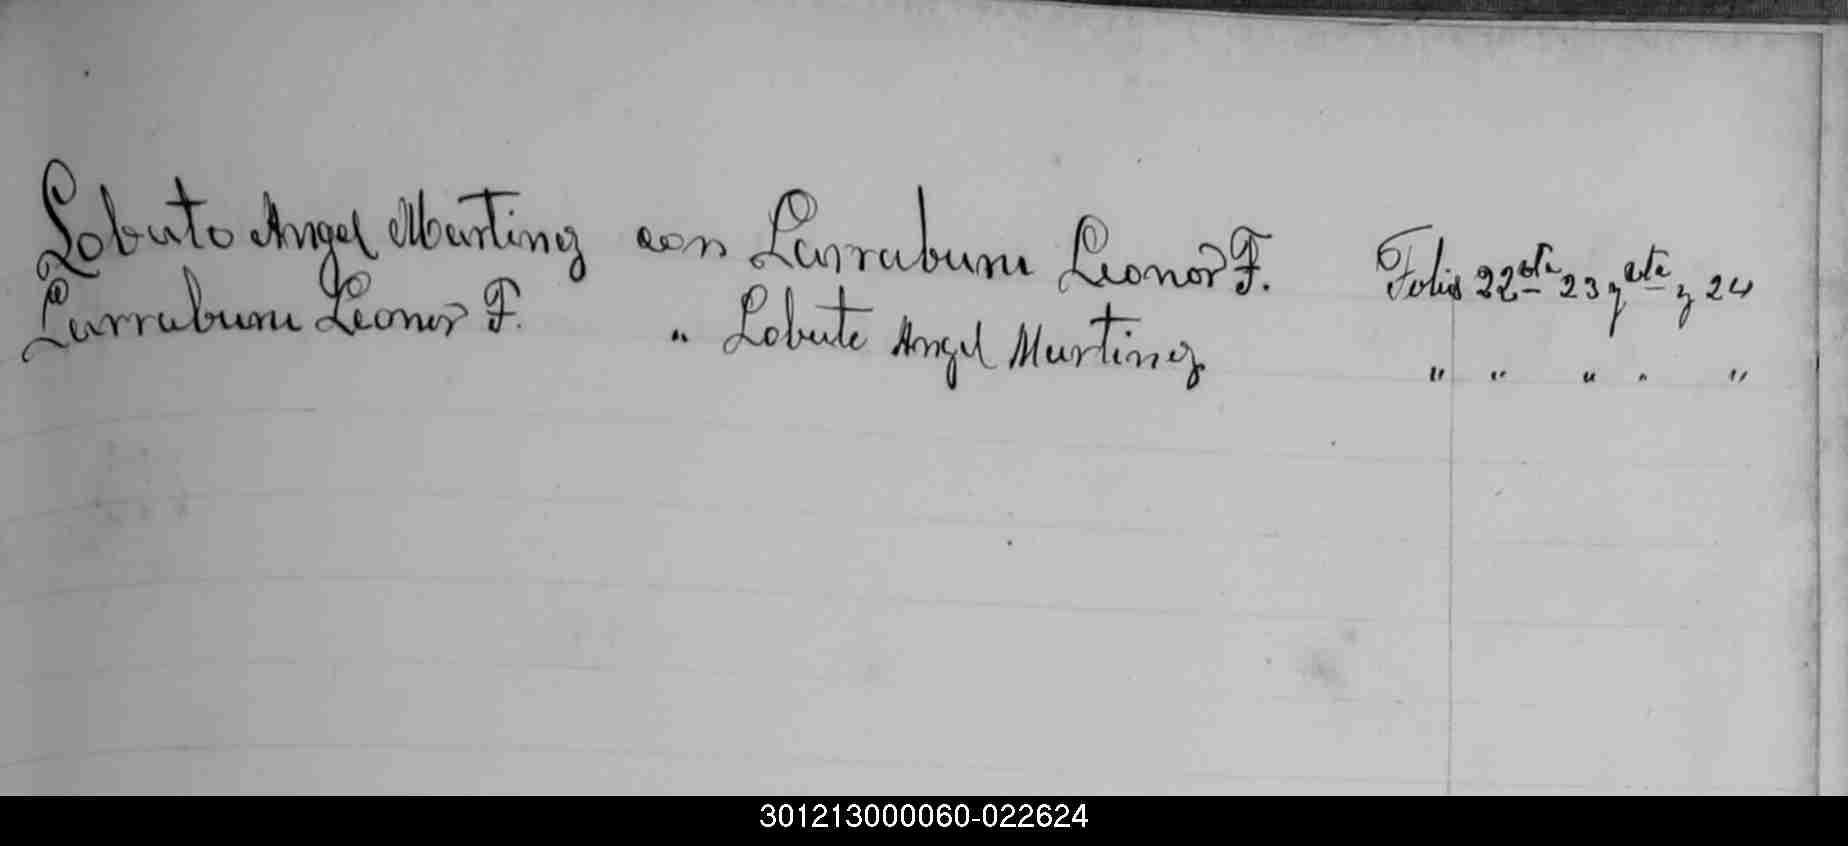 Lobato Angel Martinez con Larraburu Leonor F. Folio 22 vta 23 y vta y 24
Larraburu Leonor F. " Lobato Angel Martinez " " " " "
301213000060-022624